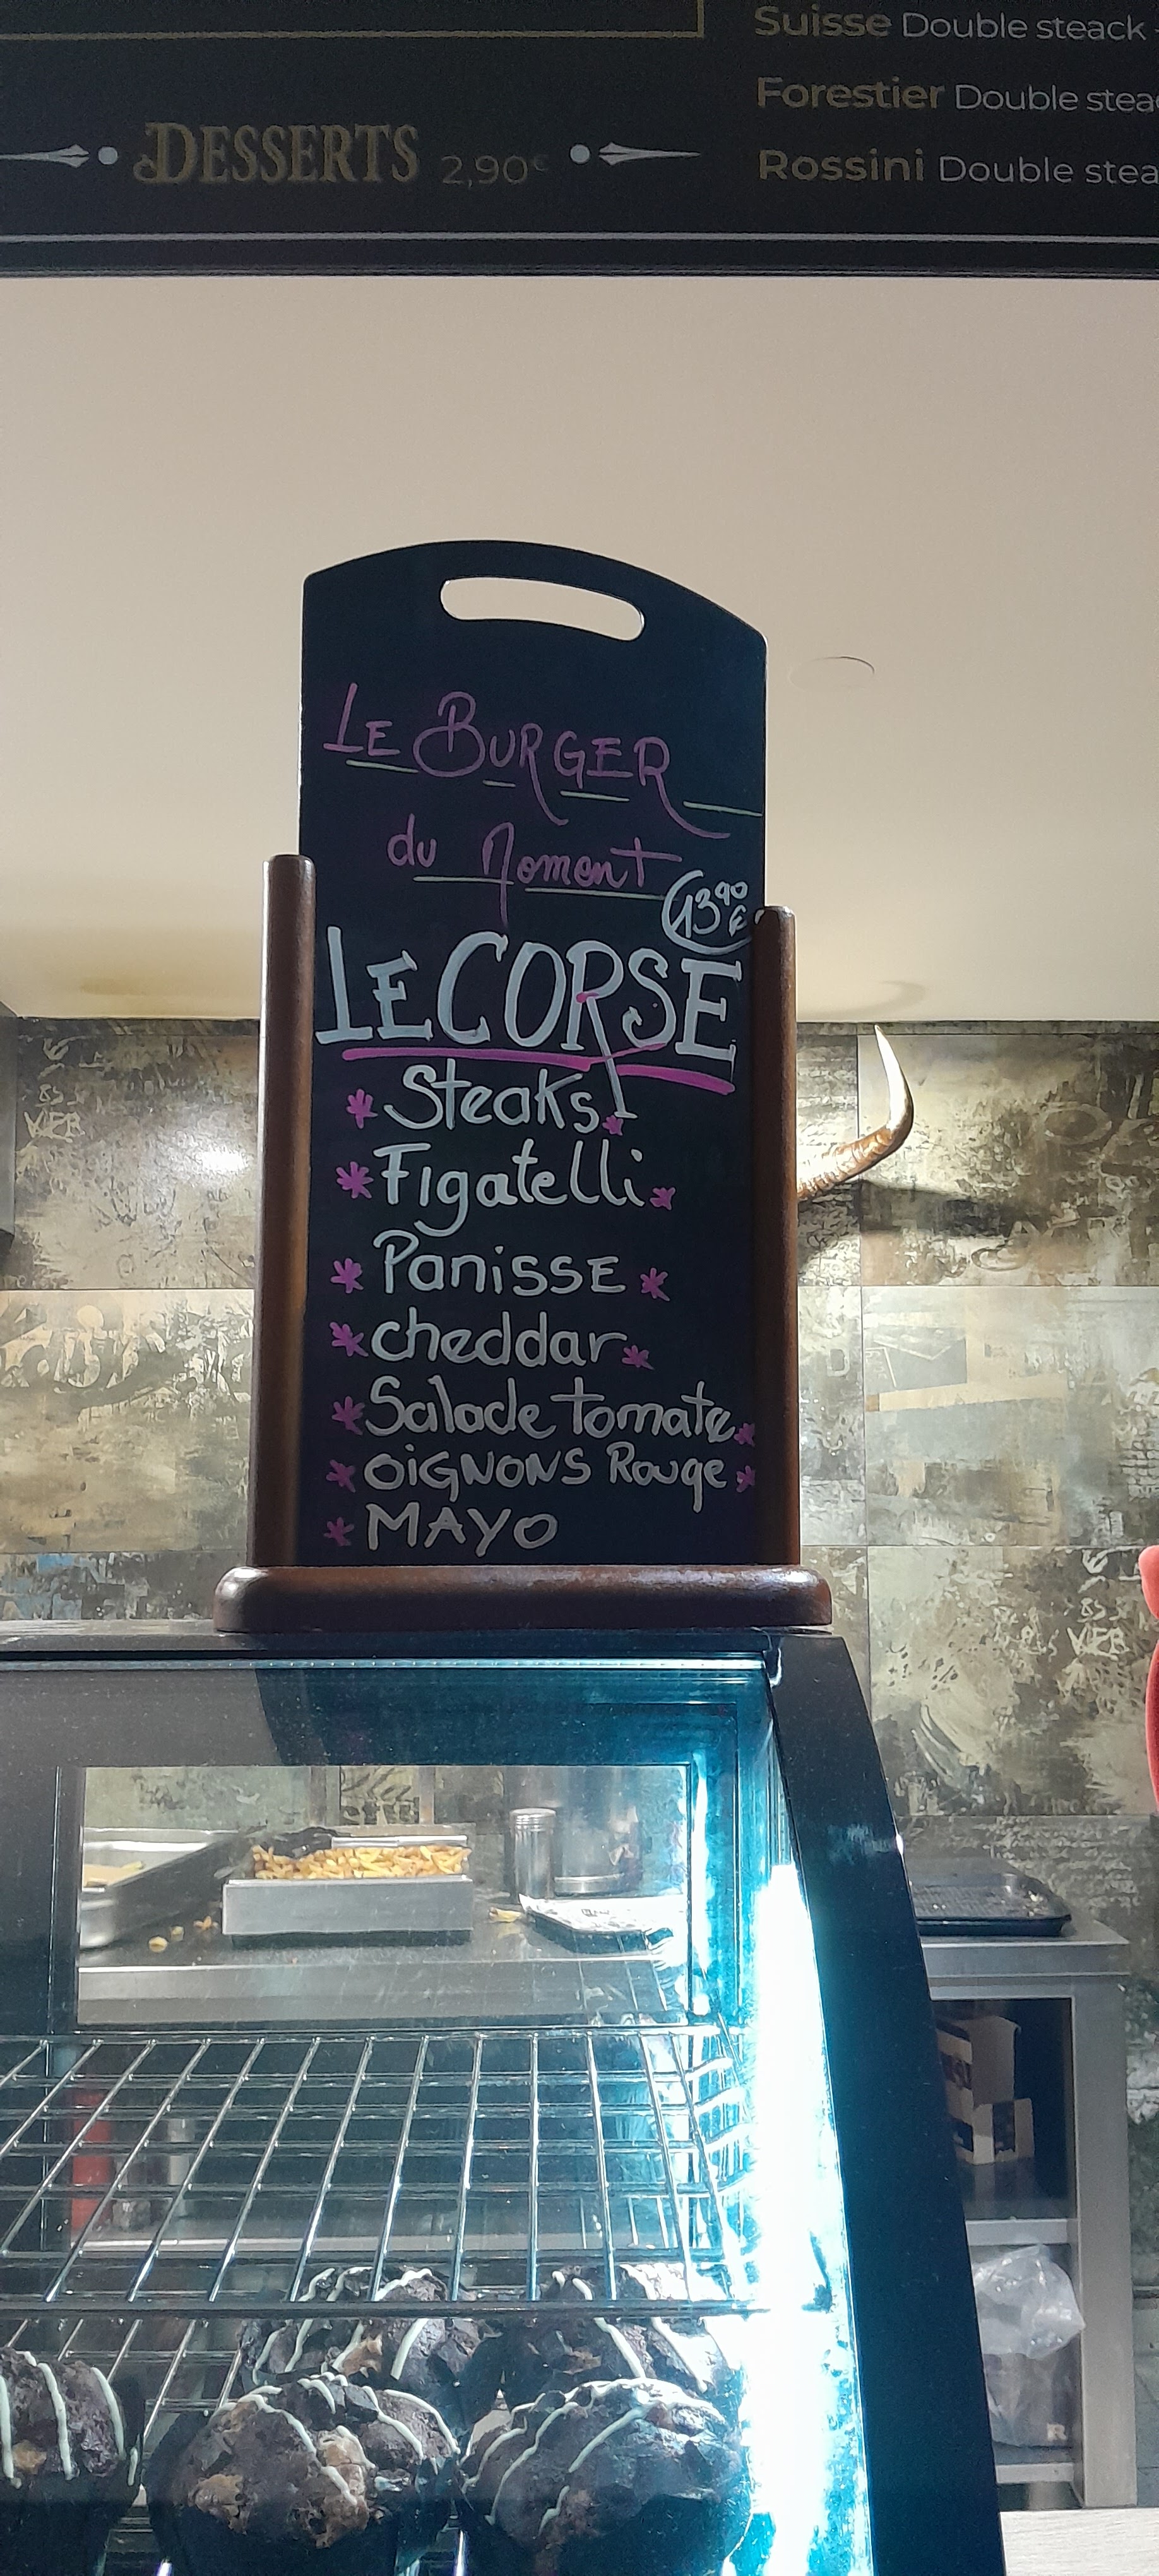 Suisse Double steack
Forestier Double steac
DESSERTS 2,90€
Rossini Double stea
LE BURGER
du Moment
13,90 €
LE CORSE
Steaks
Figatelli
PanissE
cheddar
Salade tomate
OiGNONS Rouge
MAYO